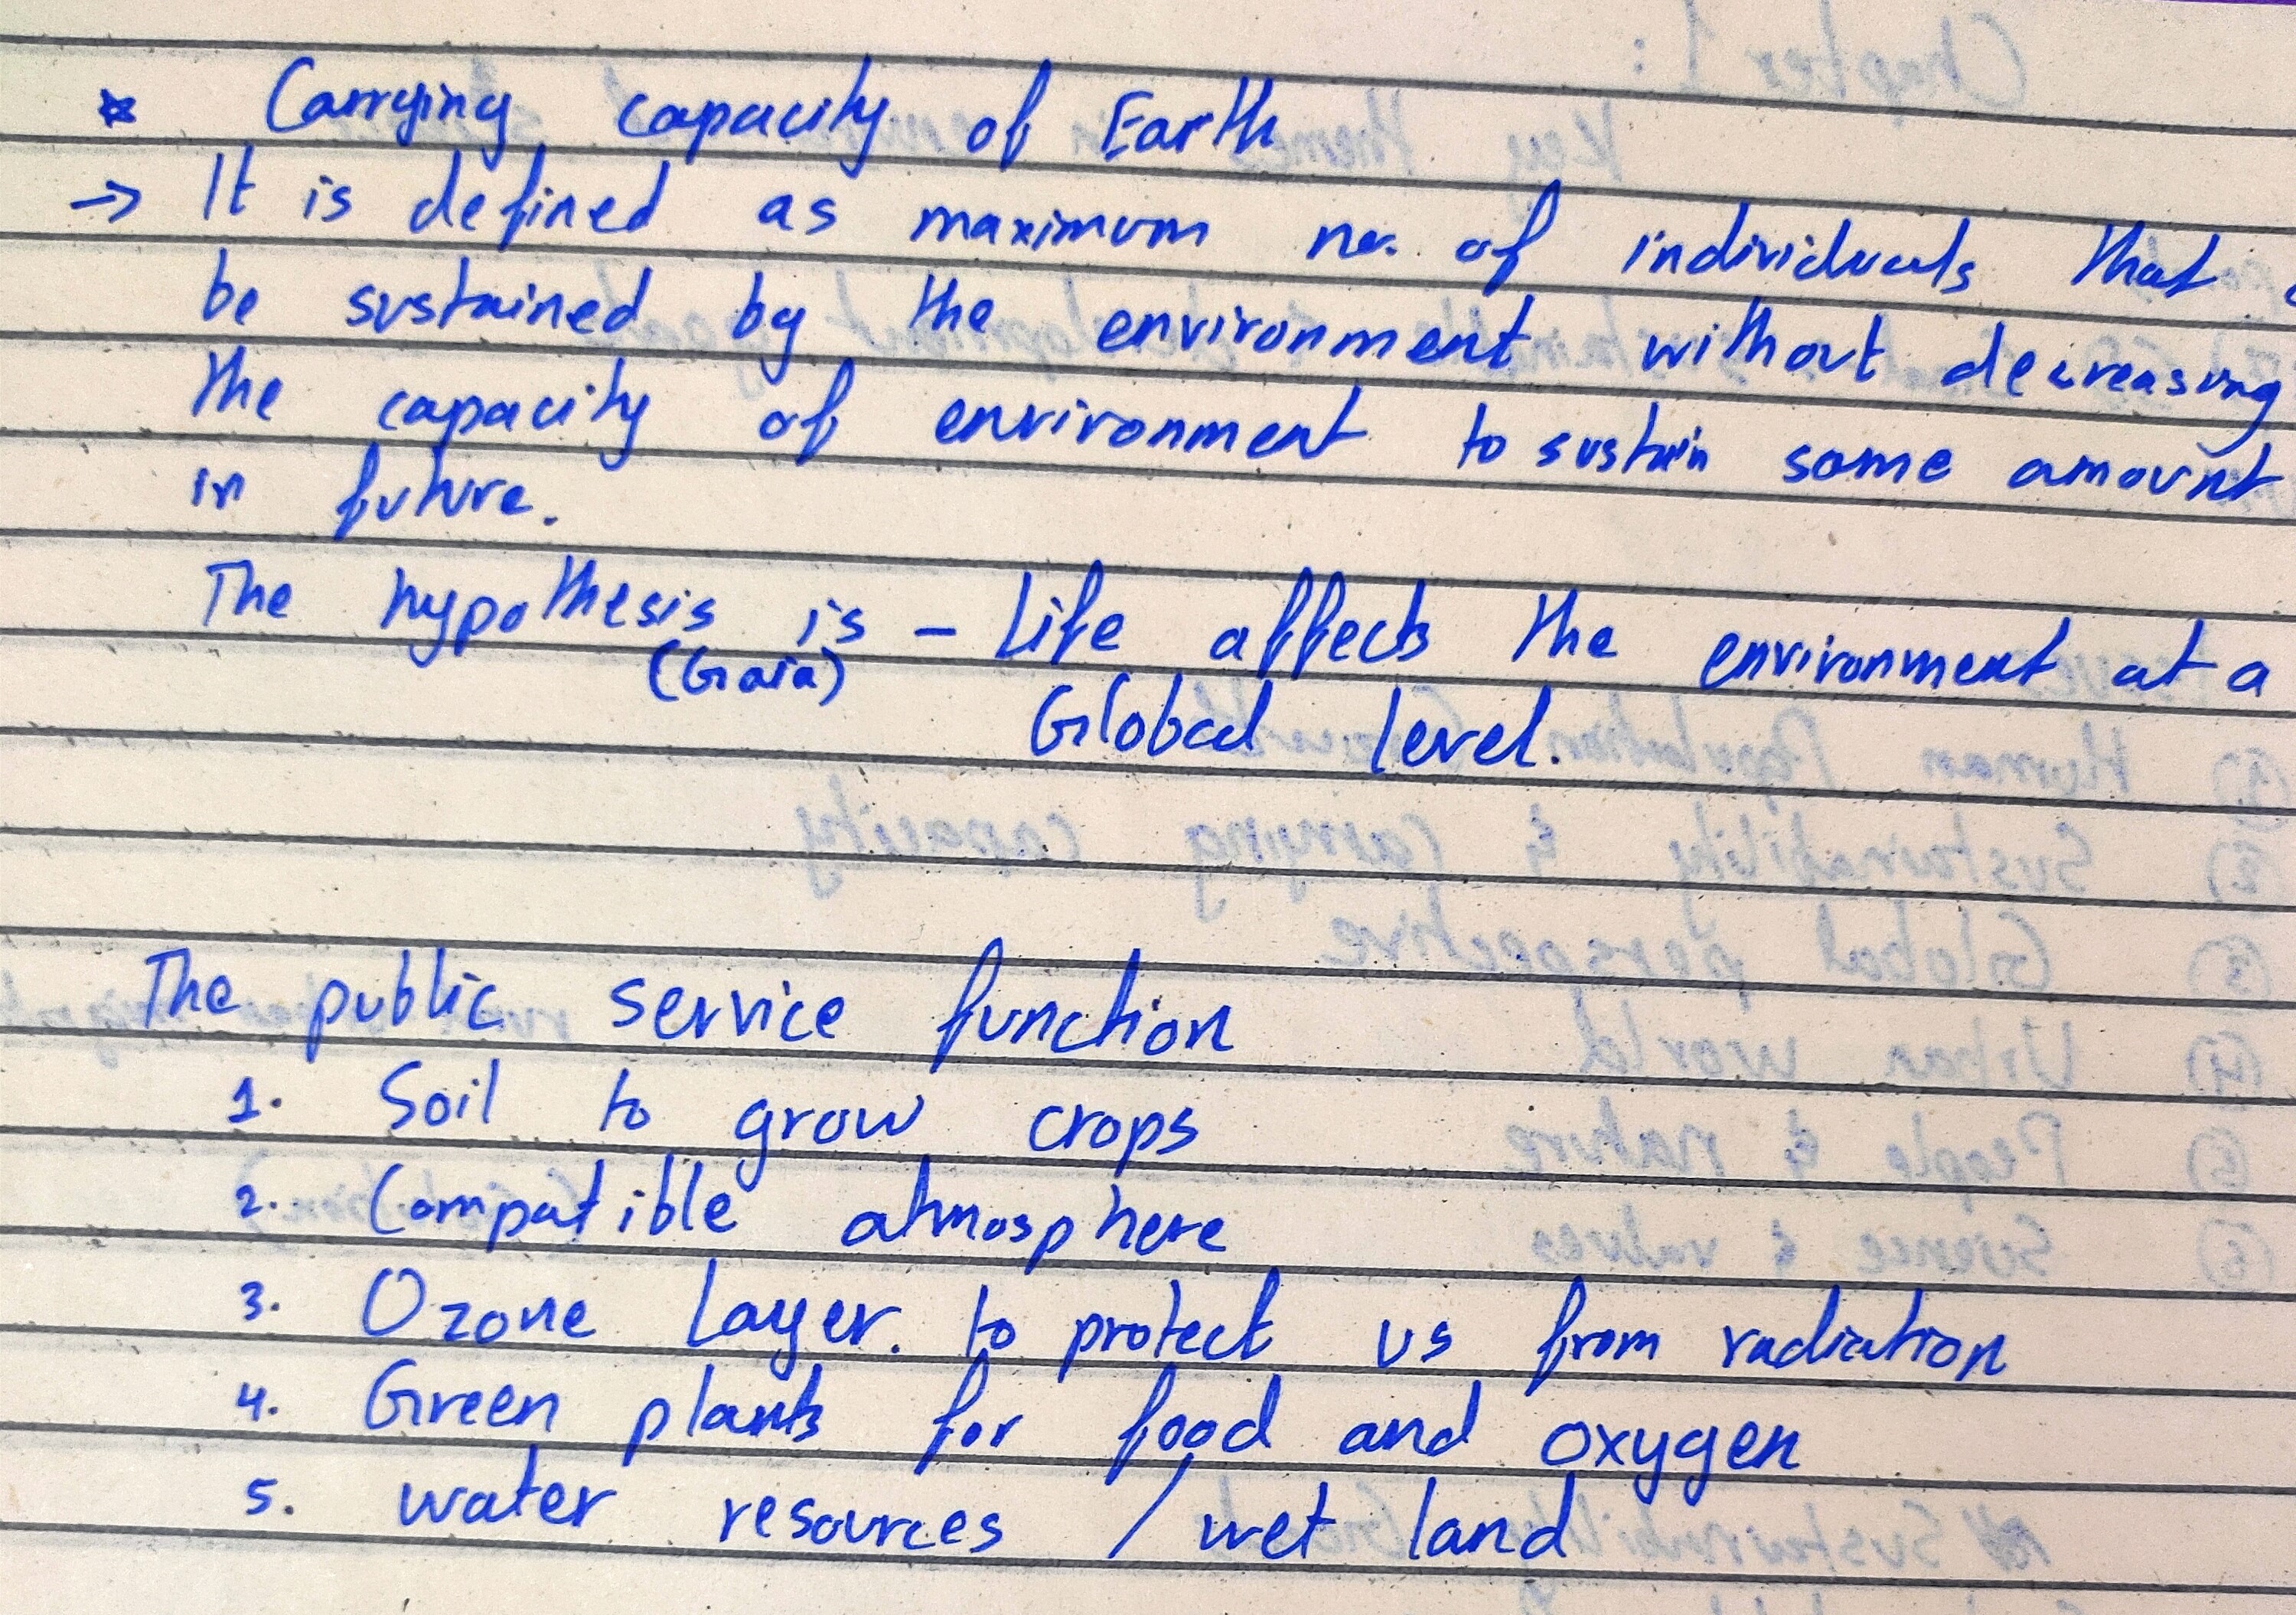 * Carrying capacity of Earth
→ It is defined as maximum no. of individuals that
be sustained by the environment without decreasing
the capacity of environment to sustain some amount
in future.
The hypothesis is – Life affects the environment at a
(Gaia)
Global level.
The public service function
1. Soil to grow crops
2. Compatible atmosphere
3. Ozone layer. to protect us from radiation
4. Green plants for food and oxygen
5. water resources / wet land